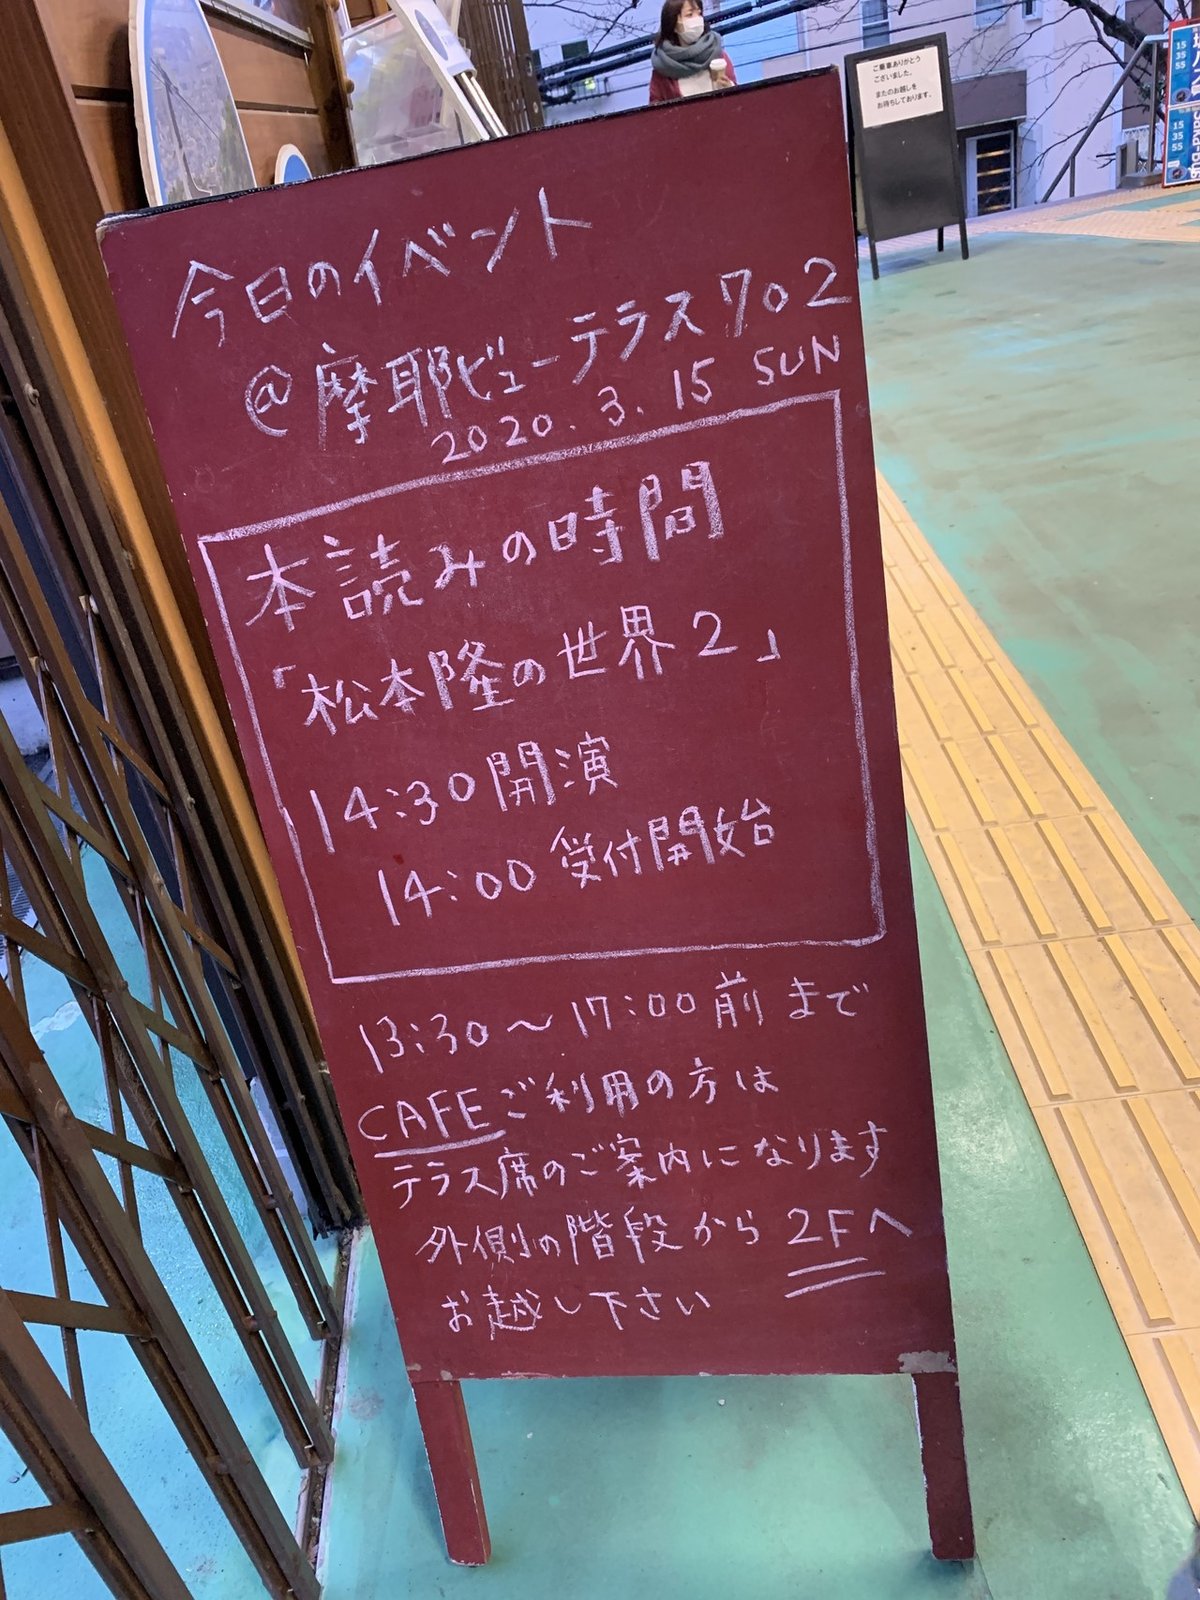 今日のイベント
@摩耶ビューテラス702
2020.3.15 SUN
本読みの時間
「松本隆の世界2」
14:30開演
14:00受付開始
13:30～17:00前まで
CAFEご利用の方は
テラス席のご案内になります
外側の階段から2Fへ
お越し下さい
ご乗車ありがとう
ございました。
またのお越しを
お待ちしております。
15
35
55
15
35
55